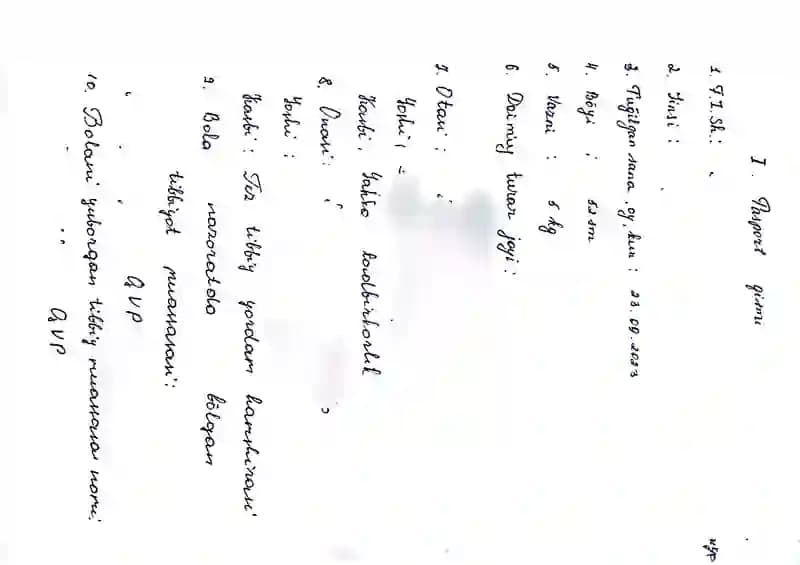 I. Pasport qismi
1. F.I.Sh.:
2. Jinsi:
3. Tug'ilgan sana, oy, kun: 23.09.2023
4. Bo'yi : 52 sm
5. Vazni : 5 kg
6. Doimiy turar joyi:
7. Otasi :
Yoshi :
Kasbi : Yakka tadbirkorlik
8. Onasi :
Yoshi :
Kasbi : Tez tibbiy yordam hamshirasi
9. Bola nazoratda bo'lgan
tibbiyot muassasasi:
QVP
10. Bolani yuborgan tibbiy muassasa nomi:
QVP